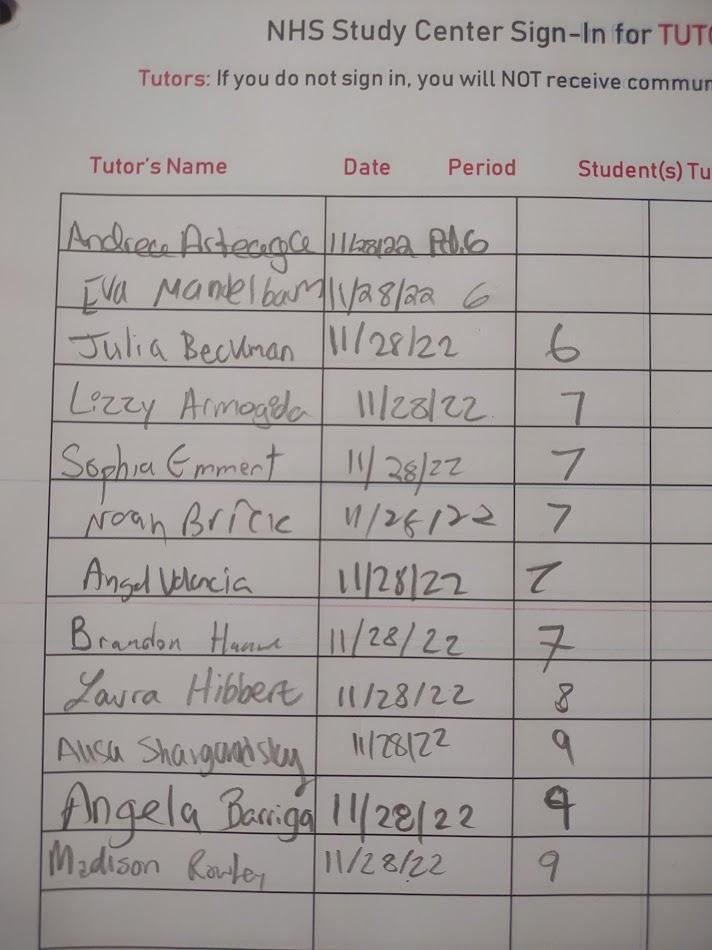 NHS Study Center Sign-In for TUTO
Tutors: If you do not sign in, you will NOT receive commun
Tutor's Name Date Period Student(s) Tu
Andrea Arteaga 11/28/22 Pd.6
Eva Mandelbaum 11/28/22 6
Julia Beckman 11/28/22 6
Lizzy Armogida 11/28/22 7
Sophia Emmert 11/28/22 7
Noah Brick 11/28/22 7
Angel Valencia 11/28/22 7
Brandon 11/28/22 7
Laura Hibbert 11/28/22 8
Alisa 11/28/22 9
Angela Barriga 11/28/22 9
Madison Rowley 11/28/22 9